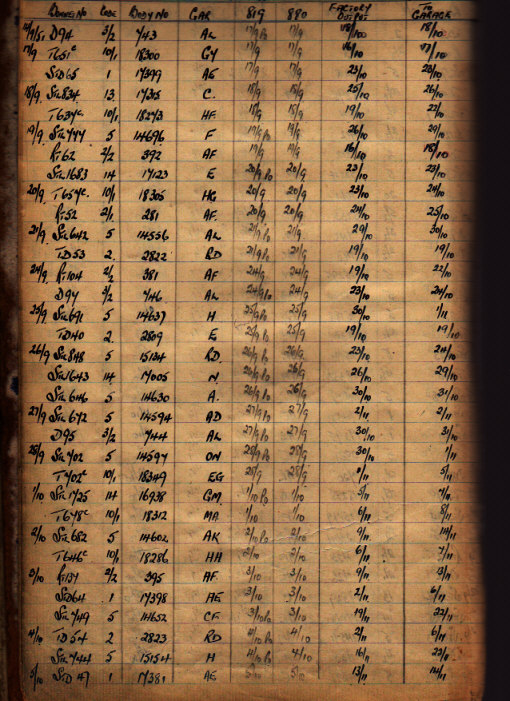 Danes No Code Body No Car 819 880 Factory Output To Garage
14/9/51 D94 3/2 743 AL 17/9 Po 17/9 18/10 18/10
17/9 T651c 10/1 18300 GY 17/9 17/9 16/10 17/10
SD65 1 17399 AE 17/9 17/9 23/10 23/10
18/9 SLL834 13 17315 C. 18/9 18/9 25/10 26/10
T637c 10/1 18273 HF 18/9 18/9 19/10 22/10
19/9 SLL777 5 14696 F 19/9 Po 19/9 26/10 29/10
Rt62 2/2 392 AF 19/9 19/9 16/10 18/10
SLL1683 14 17123 E 20/9 Po 20/9 23/10 23/10
20/9 T657c 10/1 18305 HG 20/9 20/9 23/10 24/10
Rt52 2/1 281 AF 20/9 20/9 24/10 25/10
21/9 SLL642 5 14556 AL 21/9 Po 21/9 29/10 30/10
TD53 2 2822 RD 21/9 Po 21/9 19/10 19/10
24/9 Rt104 2/2 381 AF 24/9 24/9 19/10 22/10
D97 3/2 746 AL 24/9 Po 24/9 23/10 24/10
25/9 SLL691 5 14637 H 25/9 Po 25/9 30/10 1/11
TD40 2 2809 E 25/9 Po 25/9 19/10 19/10
26/9 SLL848 5 15134 RD 26/9 Po 26/9 23/10 24/10
SLL1643 14 17005 N 26/9 Po 26/9 26/10 29/10
SLL646 5 14630 A. 26/9 Po 26/9 30/10 31/10
27/9 SLL672 5 14594 AD 27/9 Po 27/9 2/11 2/11
D95 3/2 744 AL 27/9 Po 27/9 30/10 31/10
28/9 SLL702 5 14597 ON 28/9 Po 28/9 30/10 1/11
T702c 10/1 18349 EG 28/9 28/9 5/11
1/10 SLL1725 14 16938 GM 1/10 Po 1/10 5/11 7/11
T678c 10/1 18312 MA 1/10 1/10 6/11 8/11
2/10 SLL682 5 14602 AK 2/10 Po 2/10 9/11 14/11
T646c 10/1 18286 HH 2/10 2/10 6/11 7/11
3/10 Rt137 2/2 395 AF 3/10 3/10 9/11 13/11
SD64 1 17398 AE 3/10 3/10 2/11 6/11
SLL749 5 14652 CF 3/10 Po 3/10 19/11 22/11
4/10 TD54 2 2823 RD 4/10 Po 4/10 2/11 6/11
SLL744 5 15154 H 4/10 Po 4/10 16/11 23/11
5/10 SD 47 1 17381 AE 5/10 5/10 13/11 14/11